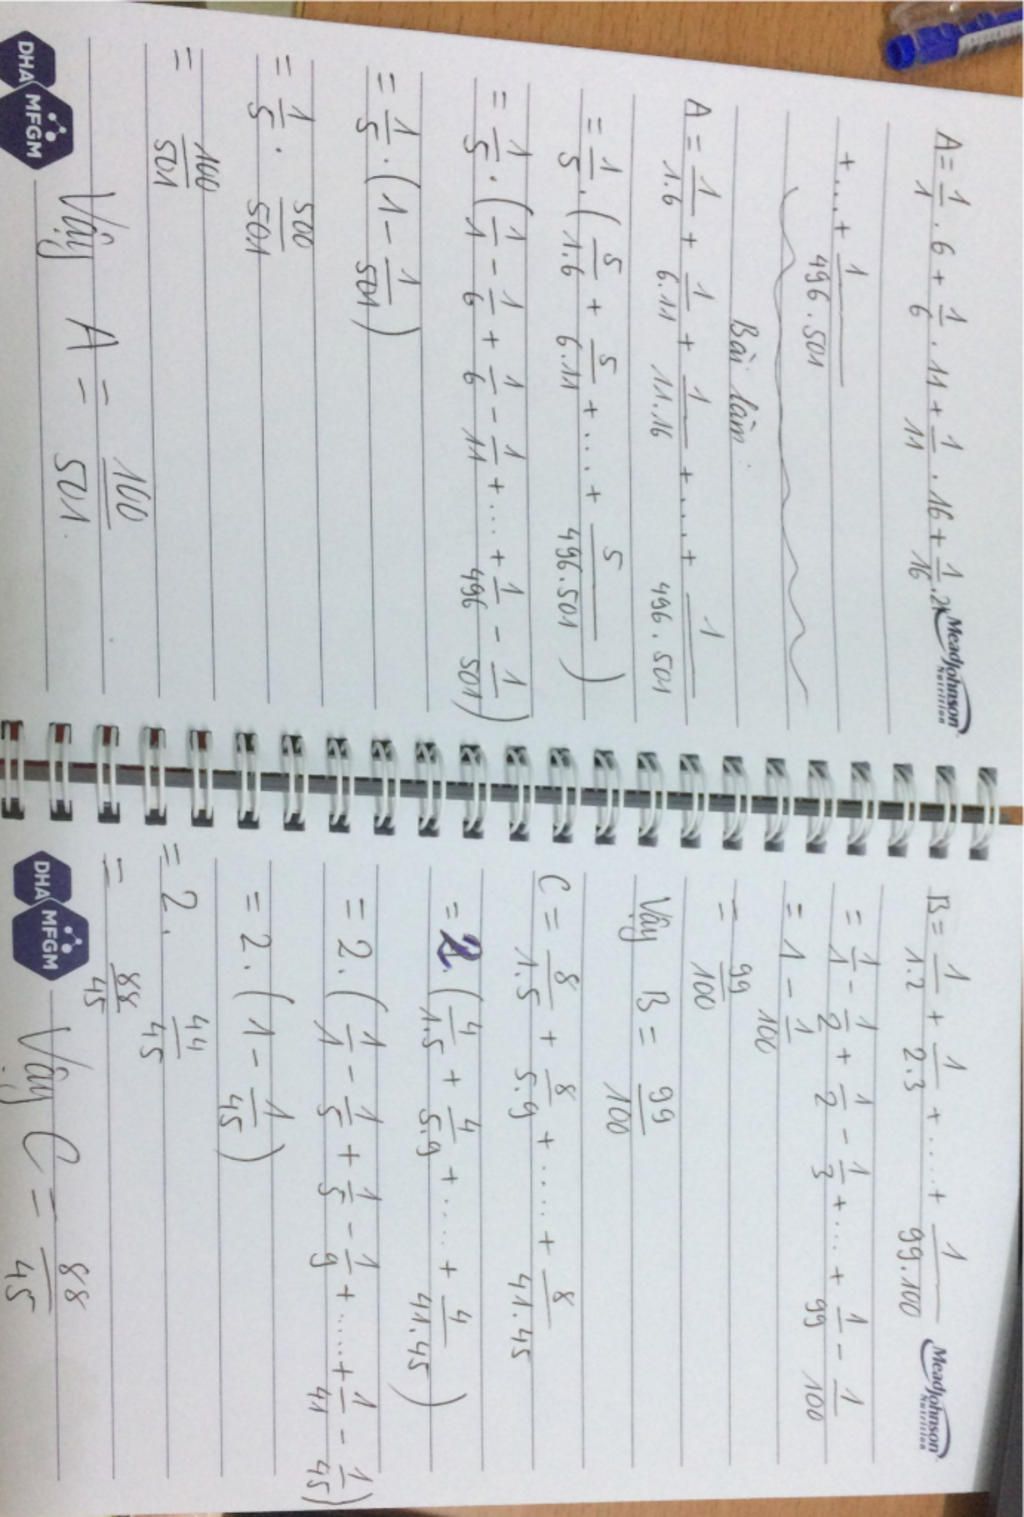 A = 1/1 . 6 + 1/6 . 11 + 1/11 . 16 + 1/16 . 21
MeadJohnson
Nutrition
+ ... + 1/496.501
Bài làm:
A = 1/1.6 + 1/6.11 + 1/11.16 + ... + 1/496.501
= 1/5 . (5/1.6 + 5/6.11 + ... + 5/496.501)
= 1/5 . (1/1 - 1/6 + 1/6 - 1/11 + ... + 1/496 - 1/501)
= 1/5 . (1 - 1/501)
= 1/5 . 500/501
= 100/501
Vậy A = 100/501.
DHA
MFGM
MeadJohnson
Nutrition
B = 1/1.2 + 1/2.3 + ..... + 1/99.100
= 1/1 - 1/2 + 1/2 - 1/3 + ... + 1/99 - 1/100
= 1 - 1/100
= 99/100
Vậy B = 99/100
C = 8/1.5 + 8/5.9 + ..... + 8/41.45
= 2.(4/1.5 + 4/5.9 + ..... + 4/41.45)
= 2.(1/1 - 1/5 + 1/5 - 1/9 + ..... + 1/41 - 1/45)
= 2.(1 - 1/45)
= 2. 44/45
= 88/45
Vậy C = 88/45
DHA
MFGM